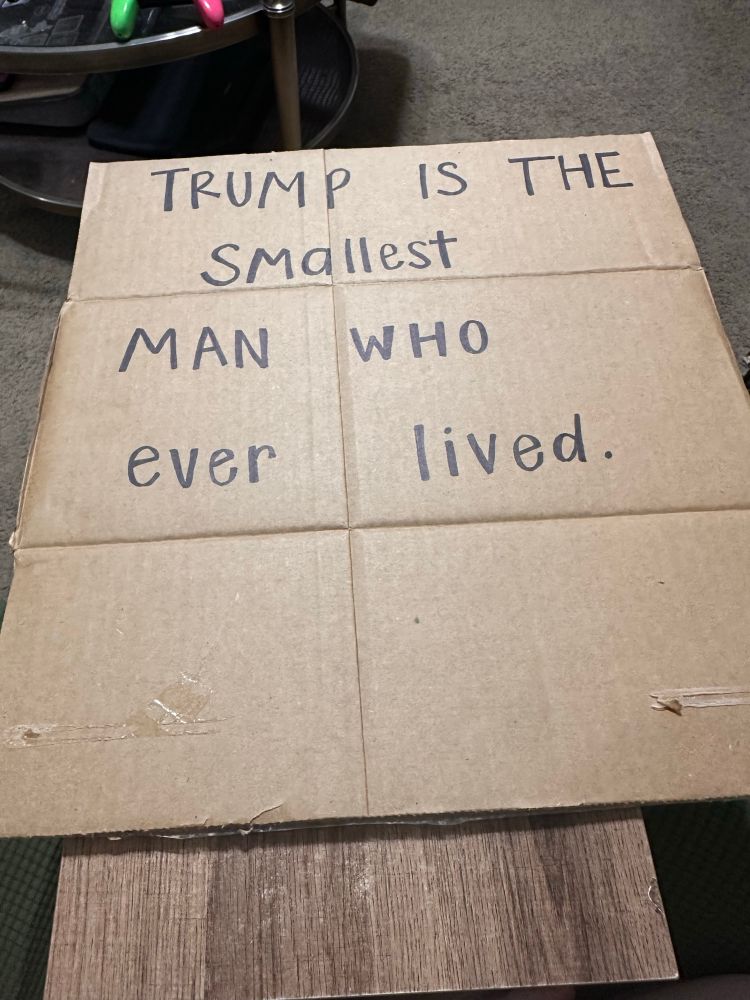 TRUMP IS THE
SMallest
MAN WHO
ever lived.